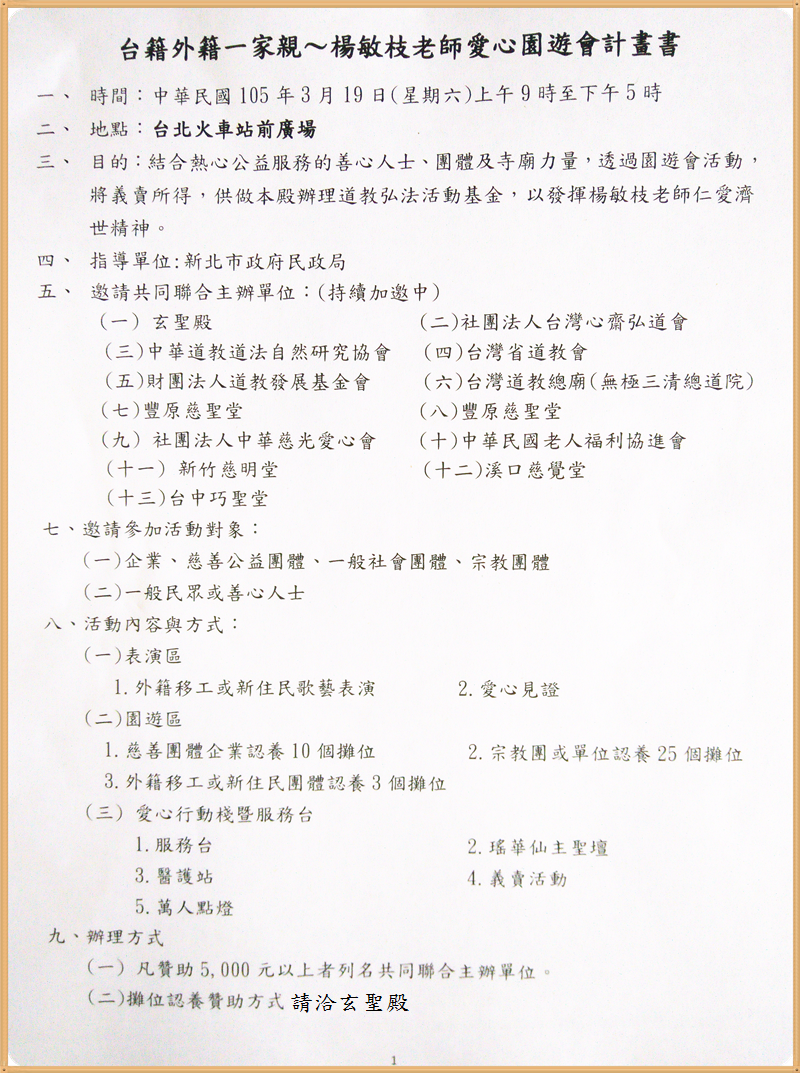 台籍外籍一家親～楊敏枝老師愛心園遊會計畫書
一、 時間：中華民國 105 年 3 月 19 日(星期六)上午 9 時至下午 5 時
二、 地點：台北火車站前廣場
三、 目的：結合熱心公益服務的善心人士、團體及寺廟力量，透過園遊會活動，
將義賣所得，供做本殿辦理道教弘法活動基金，以發揮楊敏枝老師仁愛濟
世精神。
四、 指導單位：新北市政府民政局
五、 邀請共同聯合主辦單位：(持續加邀中)
(一) 玄聖殿 (二)社團法人台灣心齋弘道會
(三)中華道教道法自然研究協會 (四)台灣省道教會
(五)財團法人道教發展基金會 (六)台灣道教總廟(無極三清總道院)
(七)豐原慈聖堂 (八)豐原慈聖堂
(九) 社團法人中華慈光愛心會 (十)中華民國老人福利協進會
(十一) 新竹慈明堂 (十二)溪口慈覺堂
(十三)台中巧聖堂
七、邀請參加活動對象：
(一)企業、慈善公益團體、一般社會團體、宗教團體
(二)一般民眾或善心人士
八、活動內容與方式：
(一)表演區
1.外籍移工或新住民歌藝表演 2.愛心見證
(二)園遊區
1.慈善團體企業認養 10 個攤位 2.宗教團或單位認養 25 個攤位
3.外籍移工或新住民團體認養 3 個攤位
(三) 愛心行動棧暨服務台
1.服務台 2.瑤華仙主聖壇
3.醫護站 4.義賣活動
5.萬人點燈
九、辦理方式
(一) 凡贊助 5,000 元以上者列名共同聯合主辦單位。
(二)攤位認養贊助方式 請洽玄聖殿
1